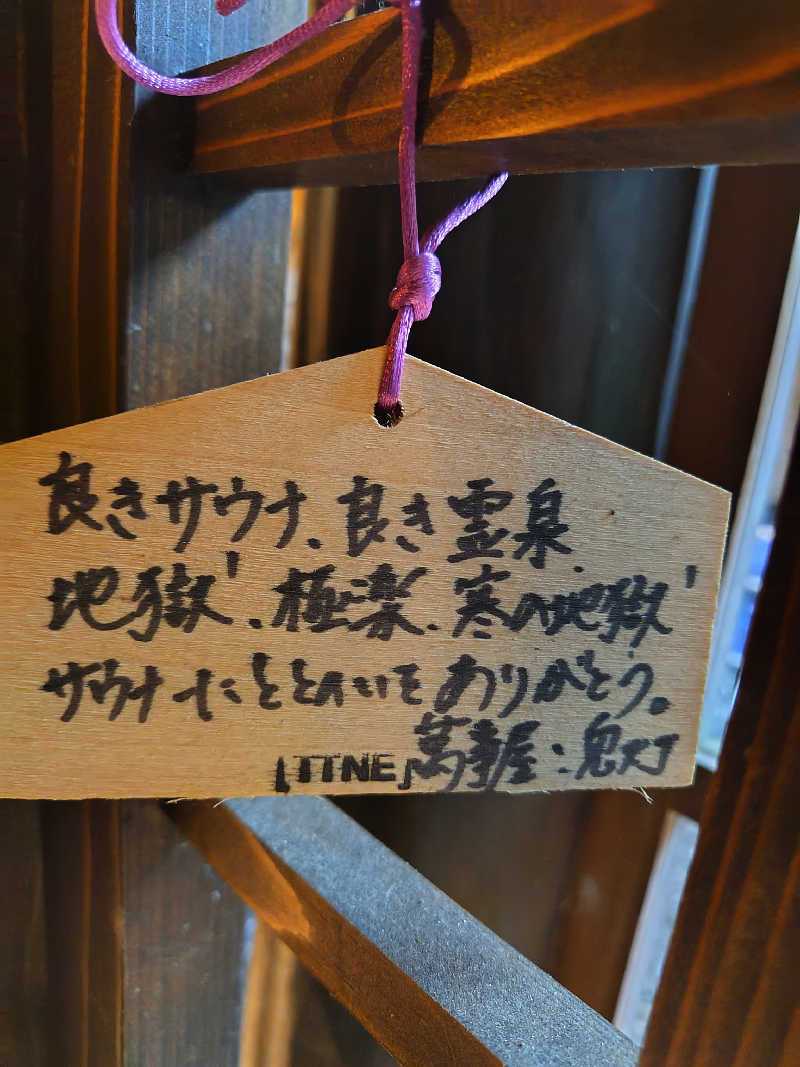 良きサウナ、良き霊泉、
地獄、極楽、寒の地獄
サウナにととのいをありがとう。
「TTNE」萬亭屋：鬼灯